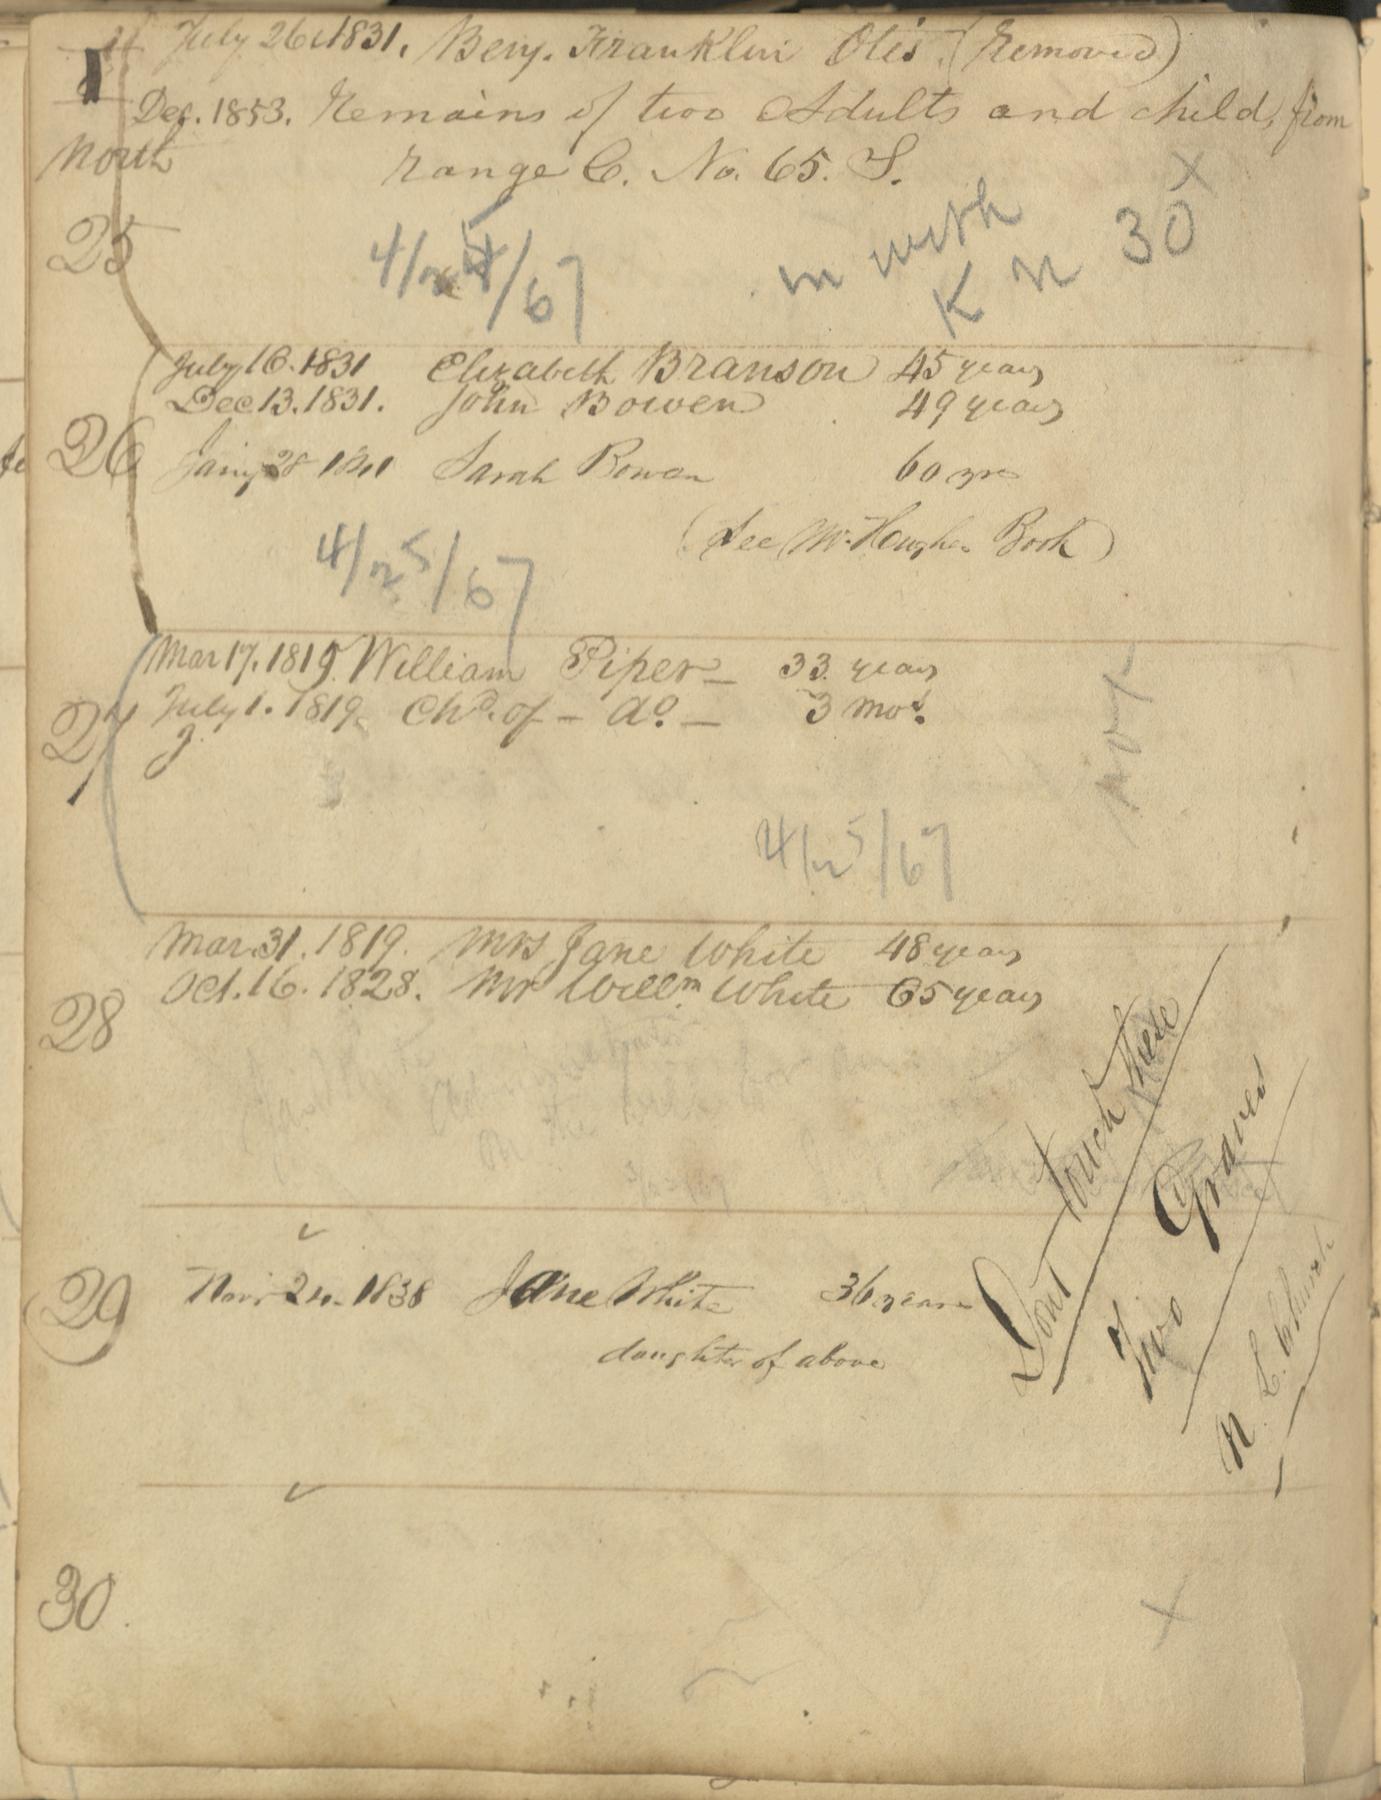 July 26. 1831. Benj. Franklin Otis. (Removed)
Dec. 1853. Remains of two Adults and child, from
North
range C. No. 65. S.
X
25
4/25/67
in with
K N 30
July 16. 1831 Elizabeth Branson 45 years
Dec 13. 1831. John Bowen 49 years
26 Jany 28 1841 Sarah Bowen 60 yrs
(See Book)
4/25/67
Mar 17. 1819. William Piper — 33 years
July 1. 1819. Chd. of — do. — 3 mos.
27
4/25/67
Mar. 31. 1819. Mrs Jane White 48 years
Oct. 16. 1828. Mr Willm White 65 years
28
Dont touch these
Two Graves
N. E. Church
29
Jane White 36 years
daughter of above
30.
X